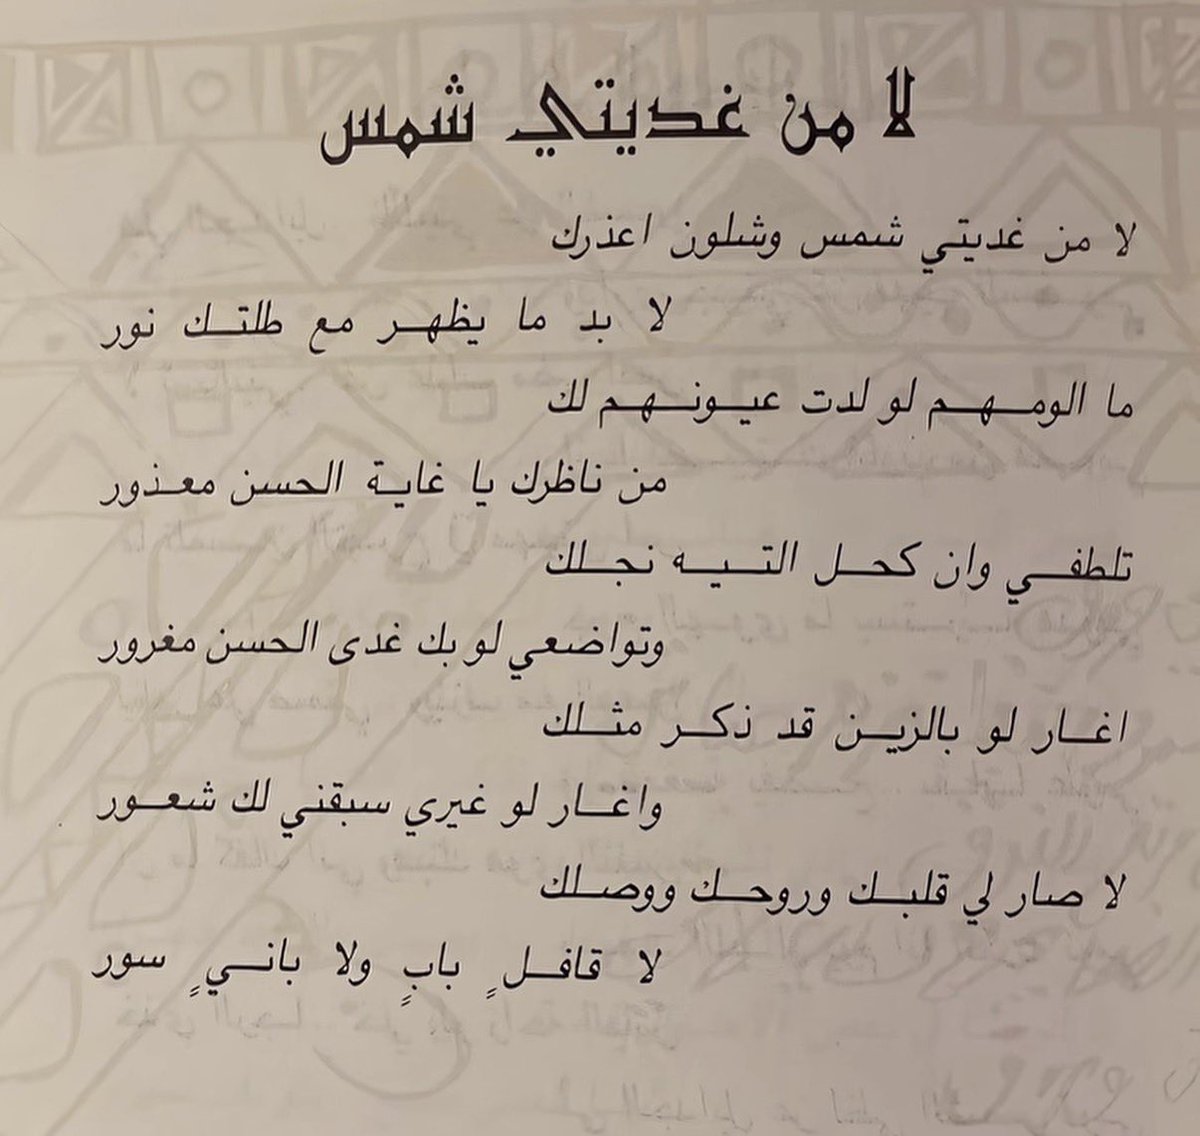 لا من غديتي شمس
لا من غديتي شمس وشلون اعذرك
لا بد ما يظهر مع طلتك نور
ما الومهم لو لدت عيونهم لك
من ناظرك يا غاية الحسن معذور
تلطفي وان كحل التيه نجلك
وتواضعي لو بك غدى الحسن مغرور
اغار لو بالزين قد ذكر مثلك
واغار لو غيري سبقني لك شعور
لا صار لي قلبك وروحك ووصلك
لا قافلٍ بابٍ ولا بانيٍ سور